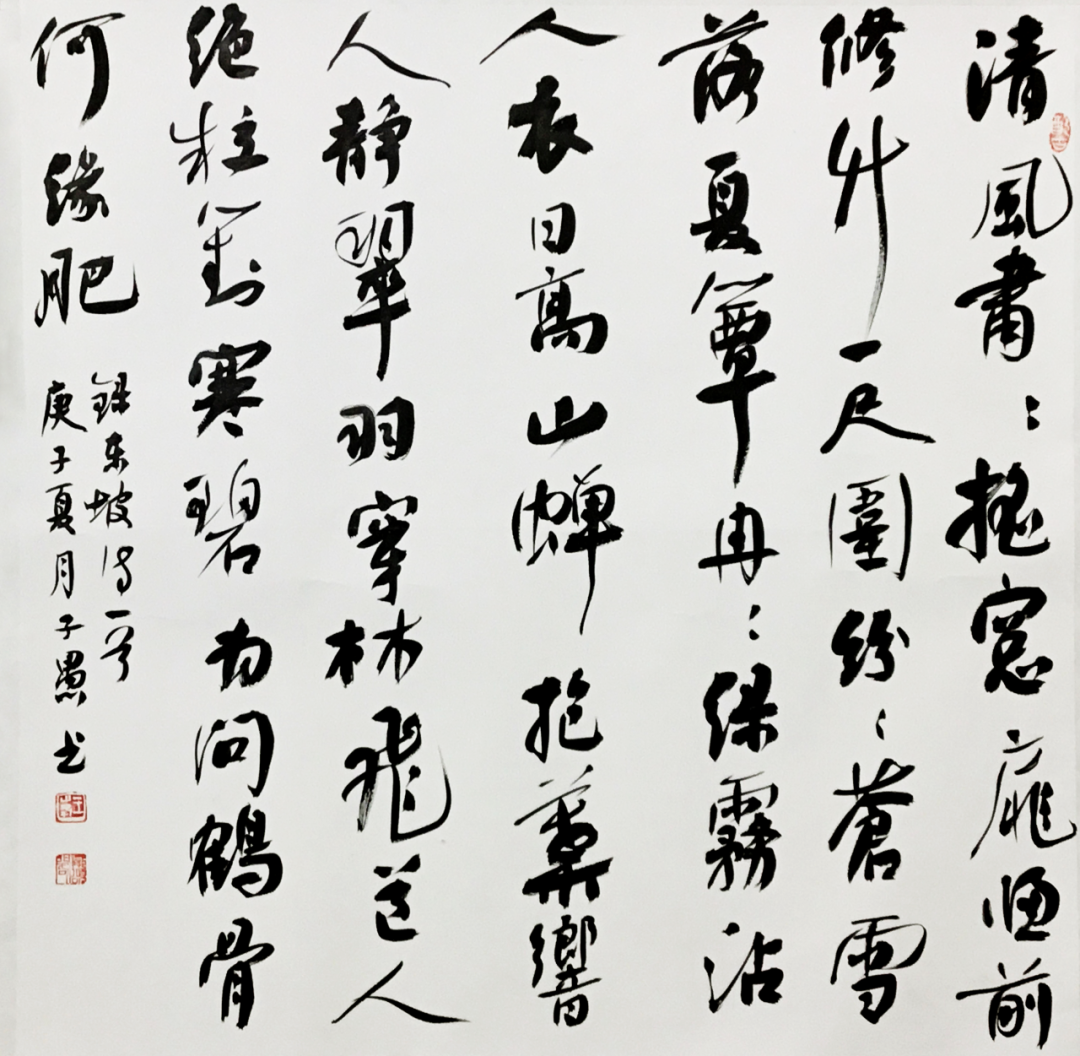 清風肅〻搖窓扉牕前
修竹一尺圍紛〻蒼雪
落夏簟冉〻綠霧沾
人衣日高山蟬抱葉響
人靜翠羽穿林飛道人
絕粒對寒碧为問鶴骨
何緣肥
錄東坡诗一首
庚子夏月子愚书